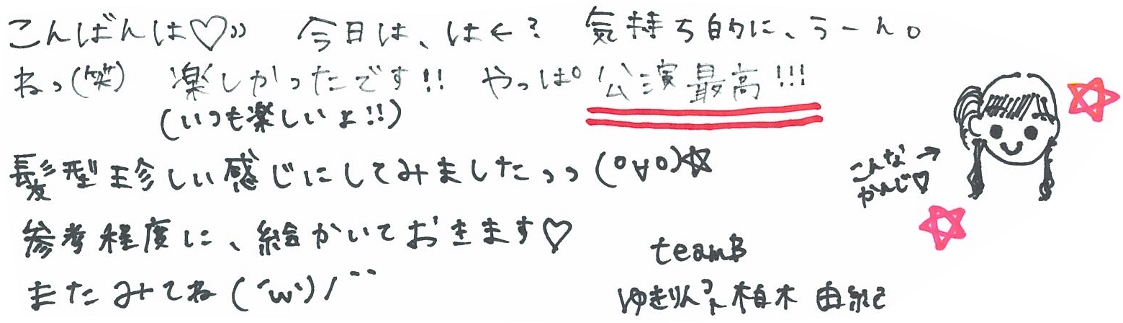 こんばんは♡» 今日は、は←? 気持ち的に、うーん。
ねっ(笑) 楽しかったです!! やっぱ°公演最高!!!
(いつも楽しいよ!!)
髪型珍しい感じにしてみましたっっ(o∀o)☆
こんな→
かんじ♡
参考程度に、絵かいておきます♡
またみてね(´w`)/¨
teamB
ゆきりんこと柏木 由紀